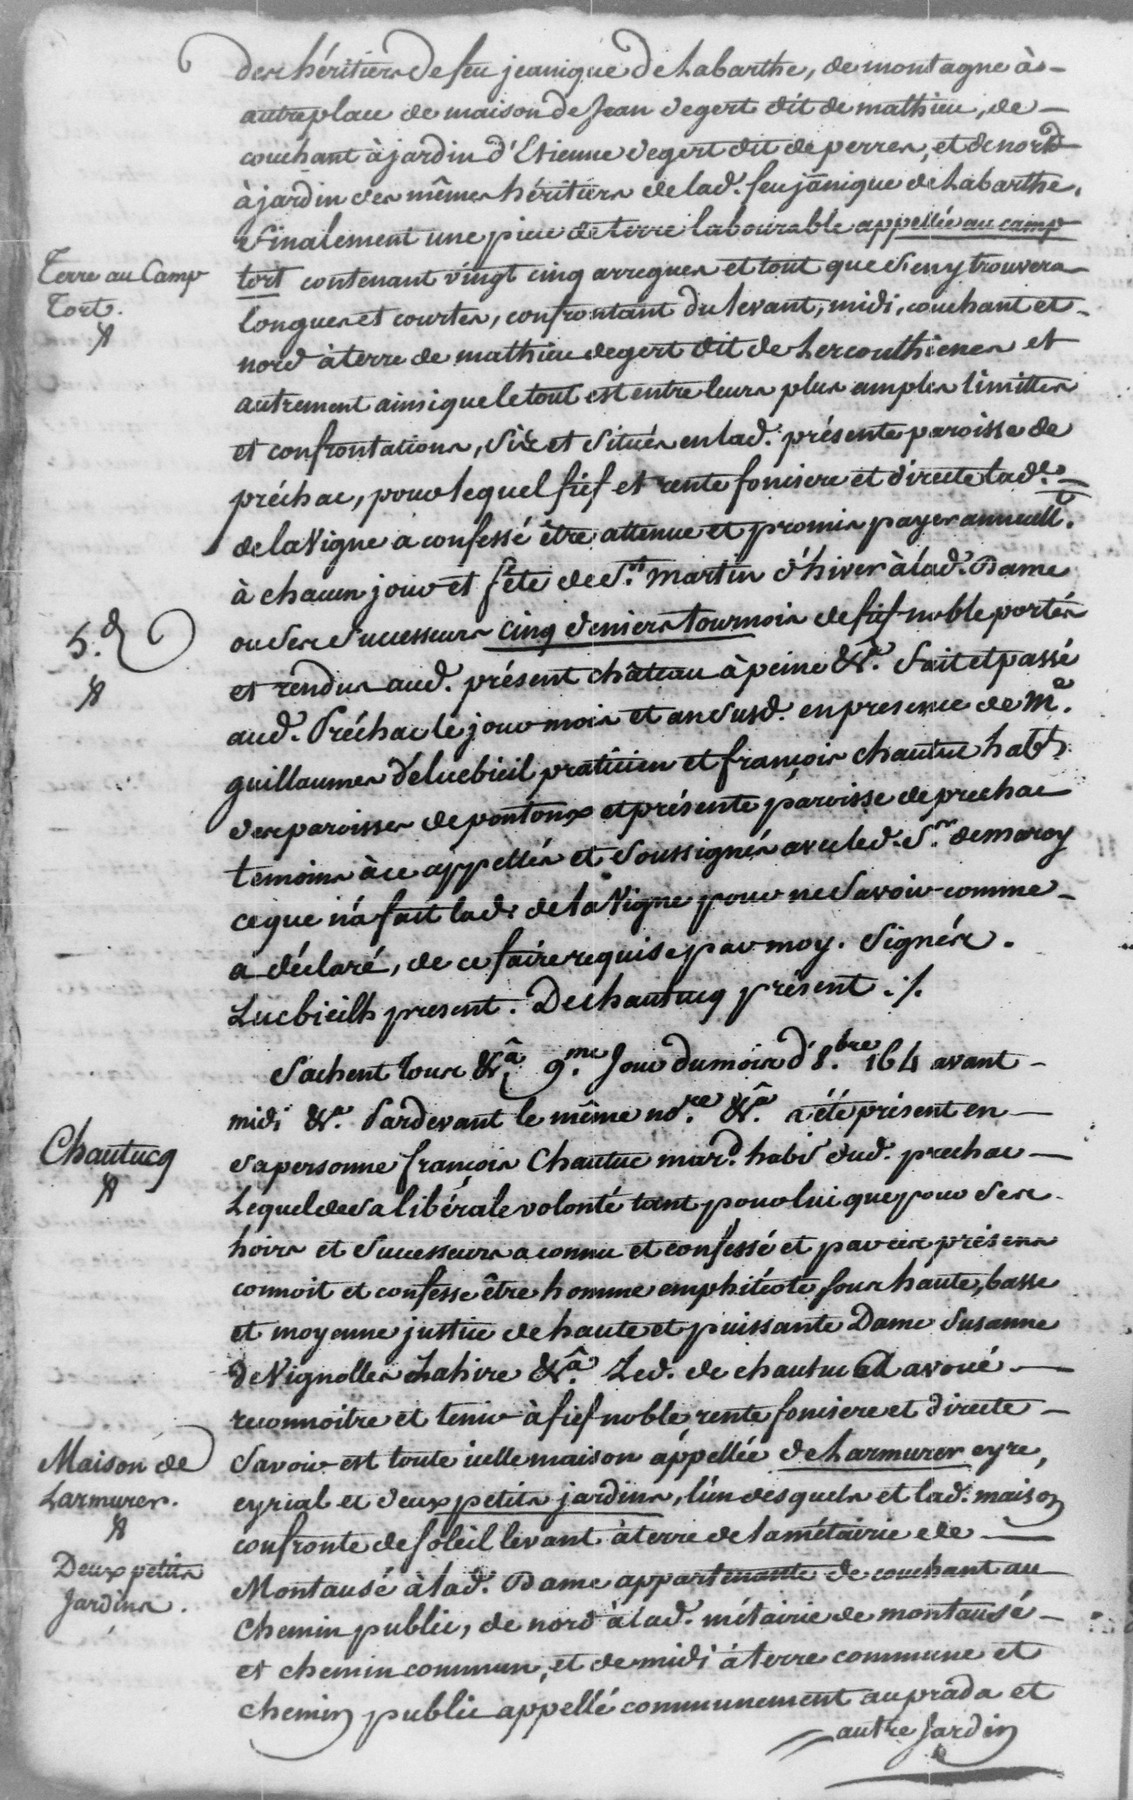 des héritiers de feu jeanique de Labarthe, de montagne à
autre place de maison de Jean degert dit de mathieu, de
couchant à jardin d'Etienne degert dit de perres, et de nord
à jardin des mêmes héritiers de lad. feu jānique de Labarthe,
Finalement une piece de terre labourable appellée au camp
Terre au Camp
Tort.
tort contenant vingt cinq arregues et tout que s'en y trouvera
longues et courtes, confrontant du levant, midi, couchant et
nord à terre de mathieu degert dit de Lescouthienes et
autrement ainsi que le tout est entre leurs plus amples limittes
et confrontations, Sis et Situés en lad. présente paroisse de
préchac, pour lequel fief et rente fonciere et directe lad.e
de la Vigne a confessé être attenue et promis payer annuellt.
à chacun jour et fête de St. Martin d'hiver à lad. Dame
5.d
ou Ses Successeurs cinq deniers tournois de fief noble portés
et rendus aud. présent château à peine &a. Fait et passé
aud. Préchac le jour mois et an Susd. en presence de Me.
guillaumes de lucbieil pratitien et françois chautuc habts.
des paroisses de pontonx et présente paroisse de prechac
temoins à ce appellés et Soussignés avec led. Sr. de maroy
ce que n'a fait lade. de la Vigne pour ne Savoir comme
a déclaré, de ce faire requise par moy. Signés.
Lucbieilh present. Dechautucq présent ./.
Sachent Tous &a. 9.me Jour du mois d'8.bre 164 avant
midi &a. Pardevant le même nore. &a. a été présent en
Chautucq
Sa personne françois Chautuc mard. habt. dud. prechac
Lequel de Sa libérale volonté tant pour lui que pour Ses
hoirs et Successeurs a connu et confessé et par ces présens
connoit et confesse être homme emphitéote sous haute, basse
et moyenne justice de haute et puissante Dame Susanne
de Vignolles Lahire &a. Led. de chautuc a avoué
reconnoitre et tenir à fief noble, rente fonciere et directe
Maison de
Larmurer.
Savoir est toute icelle maison appellée de Larmurer eyre,
eyrial et deux petits jardins, l'un desquels et lad. maison
Deux petits
Jardins.
confronte de Soleil levant à terre de la métairie de
Montausé à lad. Dame appartenante de couchant au
chemin public, de nord à lad. métairie de montausé
et chemin commun, et de midi à terre commune et
chemin public appellé communement au prâda et
autre Jardin